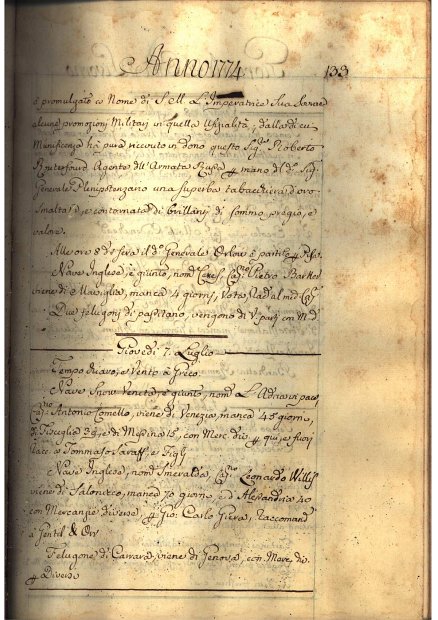 Anno 1774 133
è promulgato co Nome di S. M. L'Imperatrice Sua
alcune promozioni Militari in quella Ufizialità, dalla di cui
Munificenza hà pure ricevuto in dono questo Sigr. Roberto
Ruterfourd Agente dell'Armata Russa p mano del do. Sig.
Generale Plenipotenzario una superba tabacchiera d'oro
smaltata, e contornata di brillanti di sommo pregio, e
valore.
Alle ore 8 di sera il do. Generale Orlow è partito p Pisa
Nave Inglese, è giunto, nomta Ceres, Capno. Pietro Barker
viene di Marsiglia, manca 4 giorni, Vota, Racd. al med. Capno.
Due felugoni di passitano, vengono di V. parti con Md.
Giovedì 7. Luglio
Tempo chiaro, e Vento à Greco.
Nave Snow Veneta, è giunto, nomta L'Adriavi pace,
Capno. Antonio Comello, viene di Venezia, manca 45 giorni,
39, e di Messina 15, con Merc. div. p qui, e fuori
Racc. a Tommaso Saraff, e Figli
Nave Inglese, nomta Smeralda, Capno. Leonardo Willis
viene di Salonicco, manca 70 giorni, e d'Alesandria 40
con Mercanzie diverse, p Gio: Carlo Giera, Raccomand.
à Gentil & Orr
Felugone di Carrara, viene di Genova, con Merc. di.
p Diversi